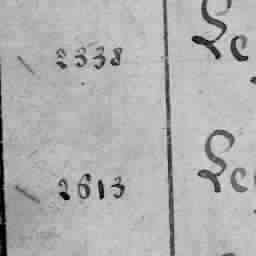 2338 Le
2613 Le